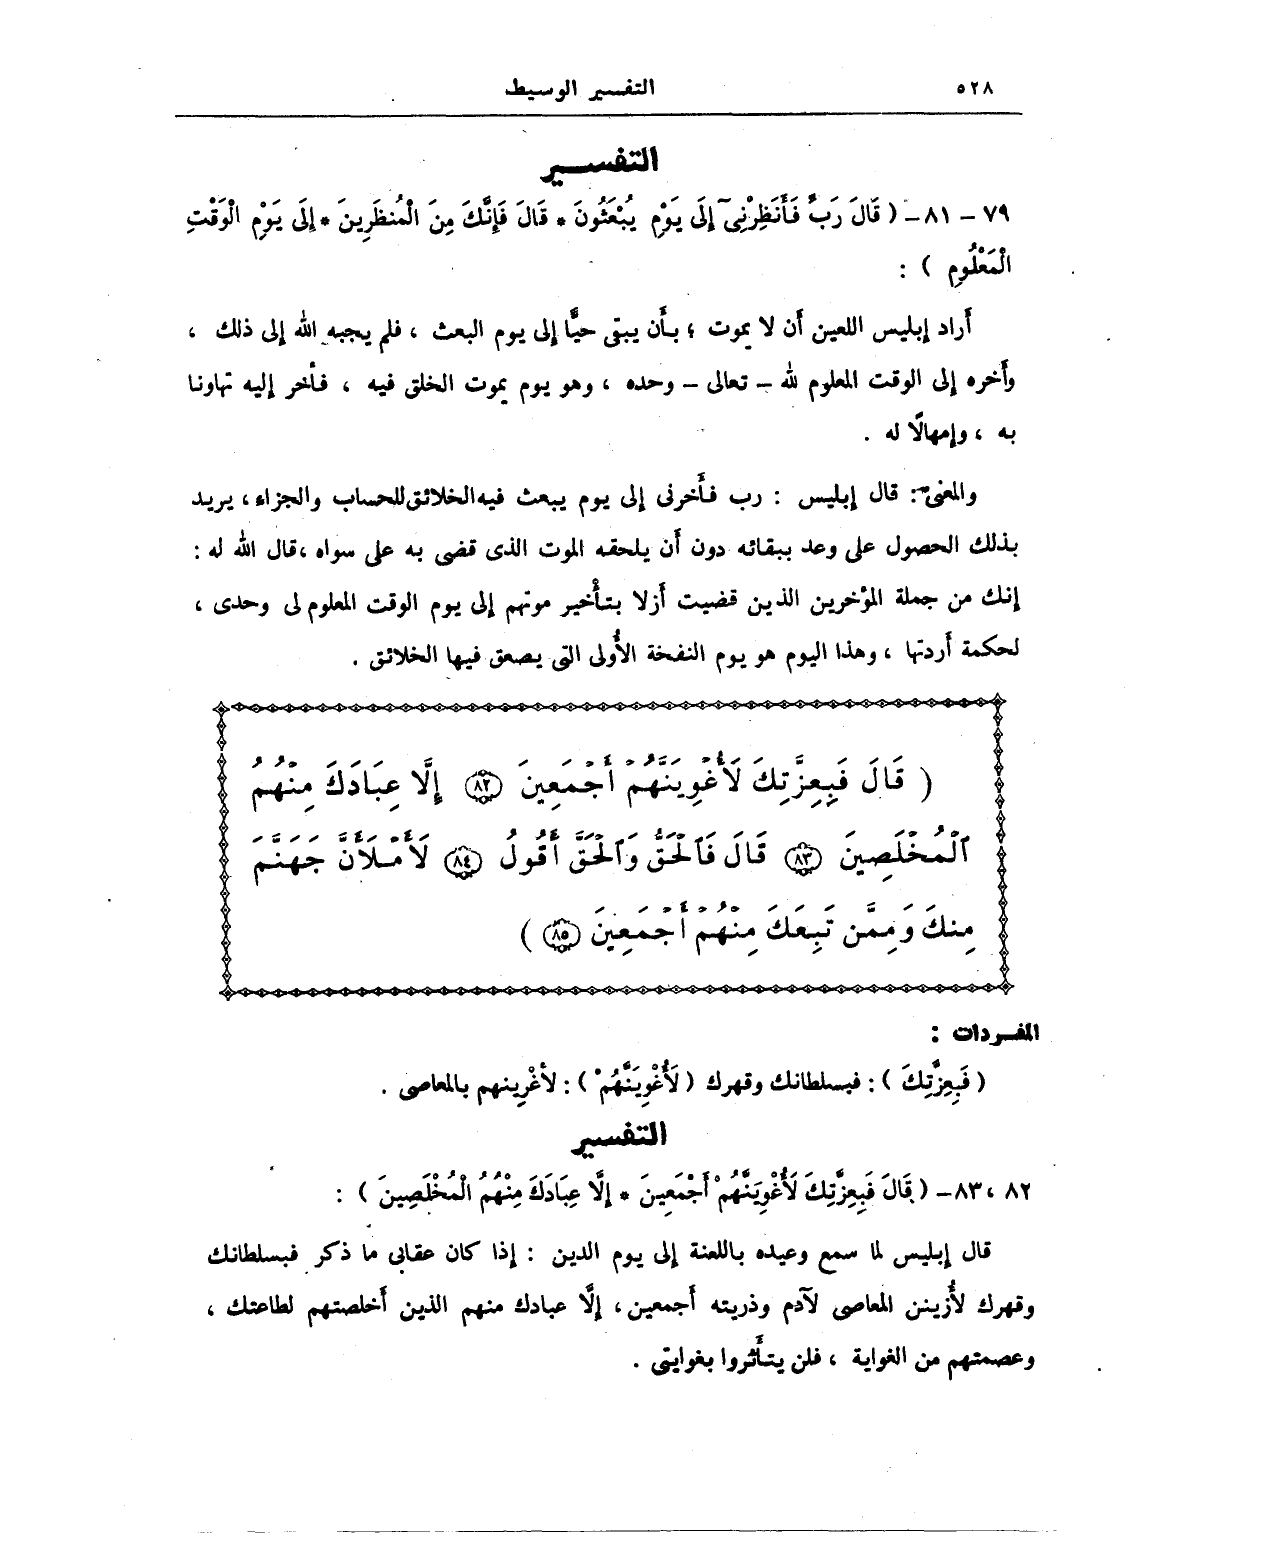 ٥٢٨
التفسير الوسيط
التفسير
٧٩ - ٨١ - ( قَالَ رَبِّ فَأَنظِرْنِىٓ إِلَى يَوْمِ يُبْعَثُونَ * قَالَ فَإِنَّكَ مِنَ الْمُنظَرِينَ * إِلَى يَوْمِ الْوَقْتِ
الْمَعْلُومِ ) :
أراد إبليس اللعين أن لا يموت ؛ بأن يبقى حيًّا إلى يوم البعث ، فلم يجبه الله إلى ذلك ،
وأخره إلى الوقت المعلوم لله - تعالى - وحده ، وهو يوم يموت الخلق فيه ، فأخر إليه تهاونا
به ، وإمهالًا له .
والمعنى : قال إبليس : رب فأخرنى إلى يوم يبعث فيه الخلائق للحساب والجزاء ، يريد
بذلك الحصول على وعد ببقائه دون أن يلحقه الموت الذى قضى به على سواه ، قال الله له :
إنك من جملة المؤخرين الذين قضيت أزلا بتأخير موتهم إلى يوم الوقت المعلوم لى وحدى ،
لحكمة أردتها ، وهذا اليوم هو يوم النفخة الأُولى التى يصعق فيها الخلائق .
( قَالَ فَبِعِزَّتِكَ لَأُغْوِيَنَّهُمْ أَجْمَعِينَ ٨٢ إِلَّا عِبَادَكَ مِنْهُمُ
ٱلْمُخْلَصِينَ ٨٣ قَالَ فَٱلْحَقُّ وَٱلْحَقَّ أَقُولُ ٨٤ لَأَمْلَأَنَّ جَهَنَّمَ
مِنكَ وَمِمَّن تَبِعَكَ مِنْهُمْ أَجْمَعِينَ ٨٥ )
المفردات :
( فَبِعِزَّتِكَ ) : فبسلطانك وقهرك ( لَأُغْوِيَنَّهُمْ ) : لأغْرِينهم بالمعاصى .
التفسير
٨٢ ، ٨٣ - ( قَالَ فَبِعِزَّتِكَ لَأُغْوِيَنَّهُمْ أَجْمَعِينَ * إِلَّا عِبَادَكَ مِنْهُمُ الْمُخْلَصِينَ ) :
قال إبليس لما سمع وعيده باللعنة إلى يوم الدين : إذا كان عقابى ما ذكر فبسلطانك
وقهرك لأُزينن المعاصى لآدم وذريته أجمعين ، إلَّا عبادك منهم الذين أخلصتهم لطاعتك ،
وعصمتهم من الغواية ، فلن يتأثروا بغوايتى .